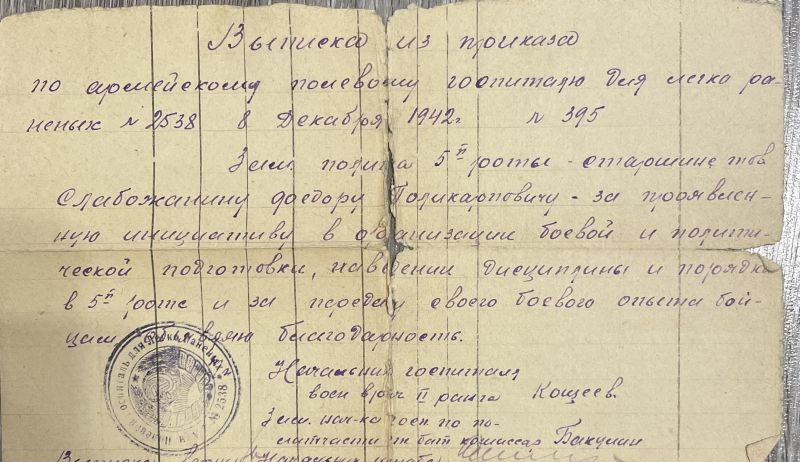 Выписка из приказа
по армейскому полевому госпиталю для легко ра-
неных № 2538 8 Декабря 1942г. № 395
Зам. политр 5й роты - старшине тов
Слабожанину Федору Поликарповичу - за проявлен-
ную инициативу в организации боевой и полити-
ческой подготовки, наведении дисциплины и порядка
в 5й роте и за передачу своего боевого опыта бой-
цам объявляю благодарность.
Начальник госпиталя
воен врач II ранга Кощеев.
Зам. нач-ка госп по по-
литчасти ст. бат комиссар Бакулин
Начальник штаба
№ 2538